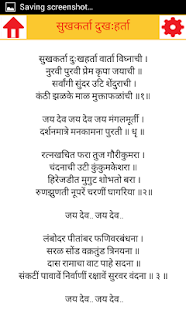 Saving screenshot...
सुखकर्ता दुखःहर्ता
सुखकर्ता दुःखहर्ता वार्ता विघ्नाची ।
नुरवी पुरवी प्रेम कृपा जयाची ॥
सर्वांगी सुंदर उटि शेंदुराची ।
कंठी झळके माळ मुक्ताफळांची ॥१॥
जय देव जय देव जय मंगलमूर्ती ।
दर्शनमात्रे मनकामना पुरती ॥ धृ ॥
रत्नखचित फरा तुज गौरीकुमरा ।
चंदनाची उटी कुंकुमकेशरा ।
हिरेजडीत मुगुट शोभतो बरा ।
रुणझुणती नूपरें चरणीं घागरिया ॥२॥
जय देव.. जय देव..
लंबोदर पीतांबर फणिवरबंधना ।
सरळ सोंड वक्रतुंड त्रिनयना ।
दास रामाचा वाट पाहे सदना ।
संकटीं पावावें निर्वाणीं रक्षावें सुरवर वंदना ॥ ३ ॥
जय देव.. जय देव..